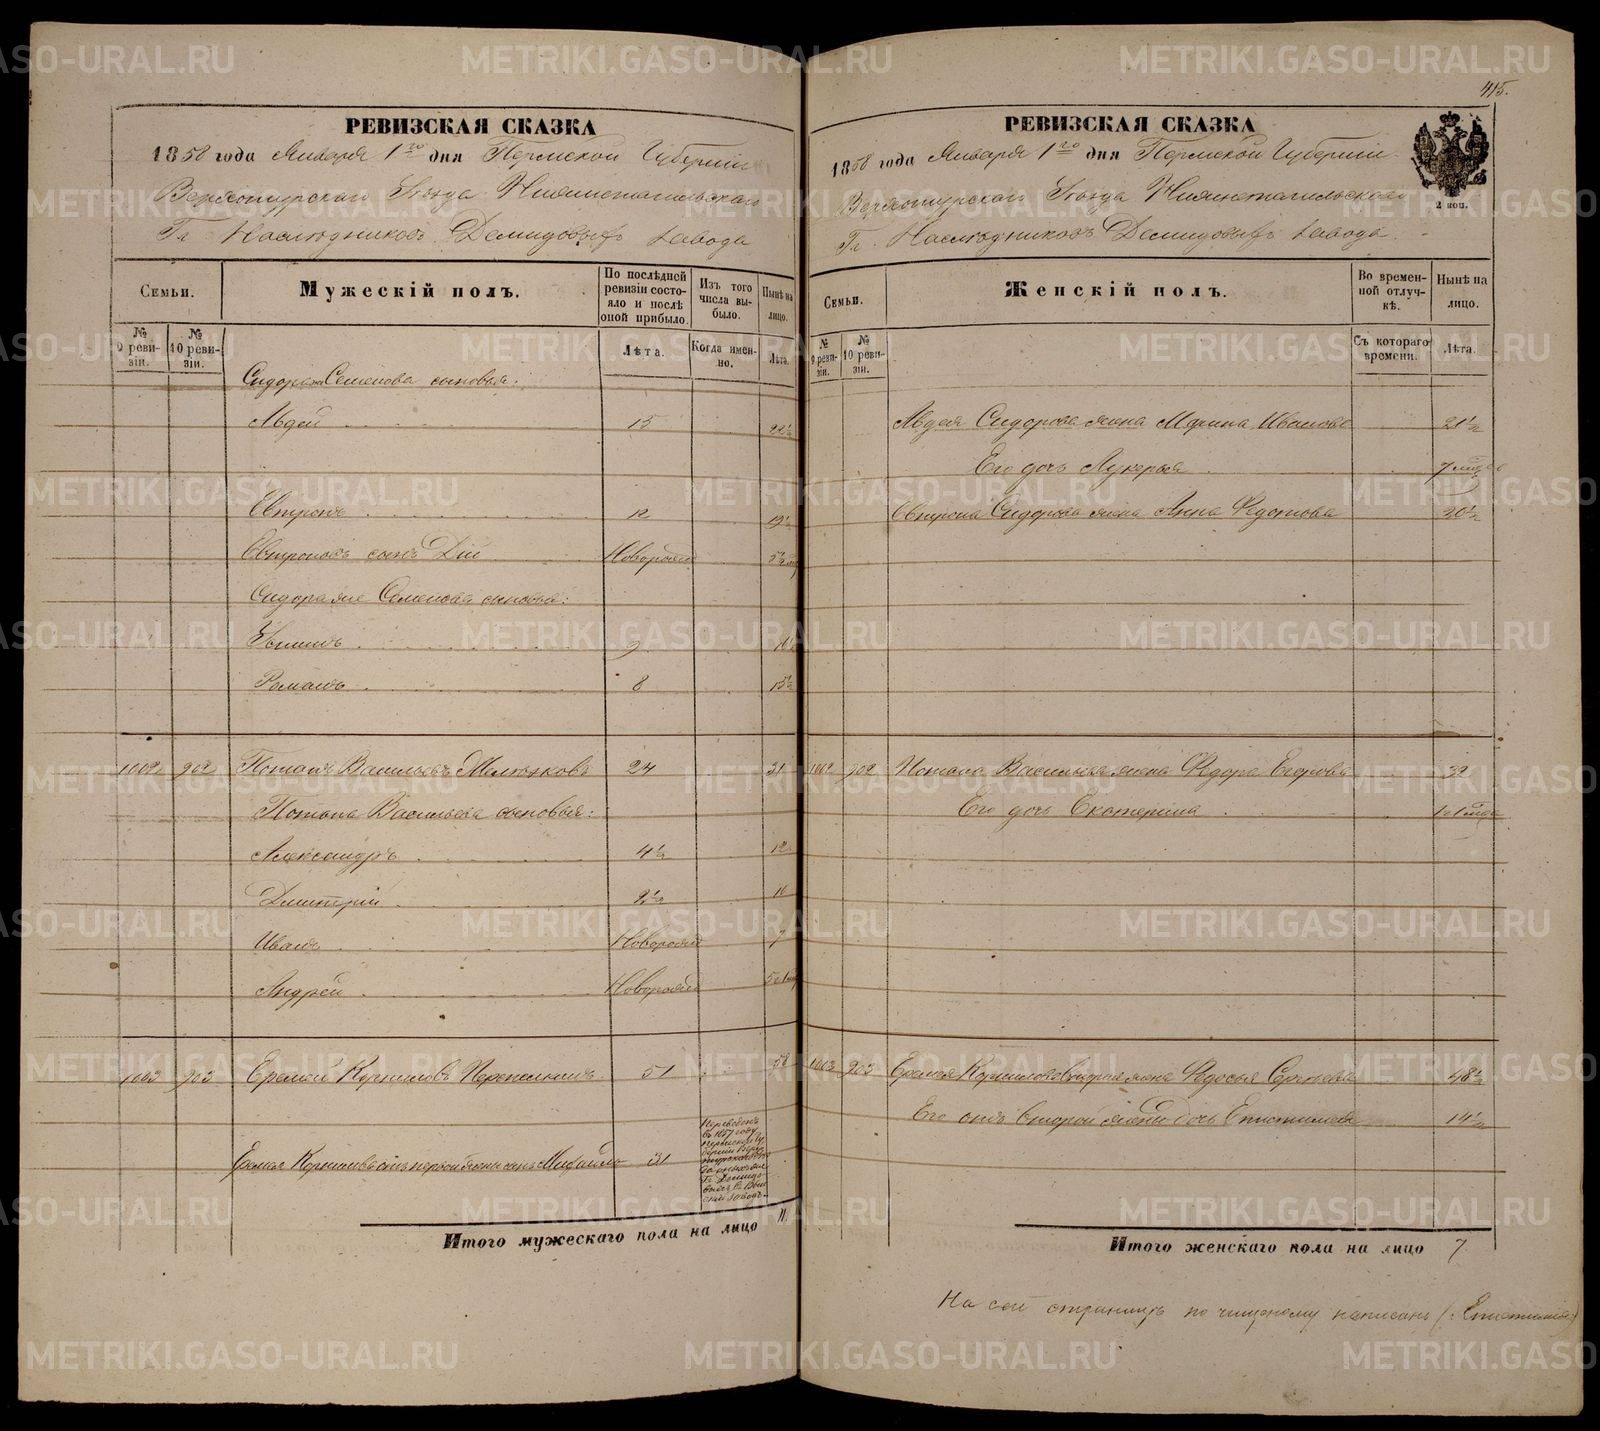 415.
РЕВИЗСКАЯ СКАЗКА
1858 года Января 1го дня Пермской Губернии
Верхотурскаго Уѣзда Нижнетагильскаго
Гг. Наслѣдниковъ Демидовыхъ завода
Семьи.
Мужескій полъ.
По послѣдней ревизіи состояло и послѣ оной прибыло.
Изъ того числа выбыло.
Нынѣ на лицо.
№ 9 ревизіи.
№ 10 ревизіи.
Лѣта.
Когда именно.
Лѣта.
Сидора Семенова сыновья:
Авдей 15 22½
Евтропъ 12 19½
Евтроповъ сынъ Дій Новорожд
Сидора же Семенова сыновья:
9
Романъ 8 15½
1002 902 Потапъ Васильевъ 24 31
Потапа Васильева сыновья:
Александръ 4½ 12
Дмитрій 2½ 10
Иванъ Новорожд 7
Андрей Новорожд
1003 903 Еремей Корниловъ 51 58
Переведенъ въ 1857 году Пермской Гу
Еремея Корнилова отъ первой жены сынъ Михайло 31
Итого мужескаго пола на лицо 11
РЕВИЗСКАЯ СКАЗКА
1858 года Января 1го дня Пермской Губерніи
Верхотурскаго Уѣзда Нижнетагильскаго
Гг. Наслѣдниковъ Демидовыхъ завода
2 коп.
Семьи.
Женскій полъ.
Во временной отлучкѣ.
Нынѣ на лицо.
№ 9 ревизіи.
№ 10 ревизіи.
Съ котораго времени.
Лѣта.
Авдея Сидорова жена Марина Иванова 21½
Его дочь Лукерья
Евтропа Сидорова жена Анна Федотова 20½
1002 902 Потапа Васильева жена Федора Егорова 32
Его дочь Екатерина
1003 903 Еремея Корнилова вторая жена Федосья Сергѣева 48½
Его отъ второй жены дочь Епистимея 14½
Итого женскаго пола на лицо 7
На сей страницѣ по чищеному написано (: Епистимея:)
METRIKI.GASO-URAL.RU